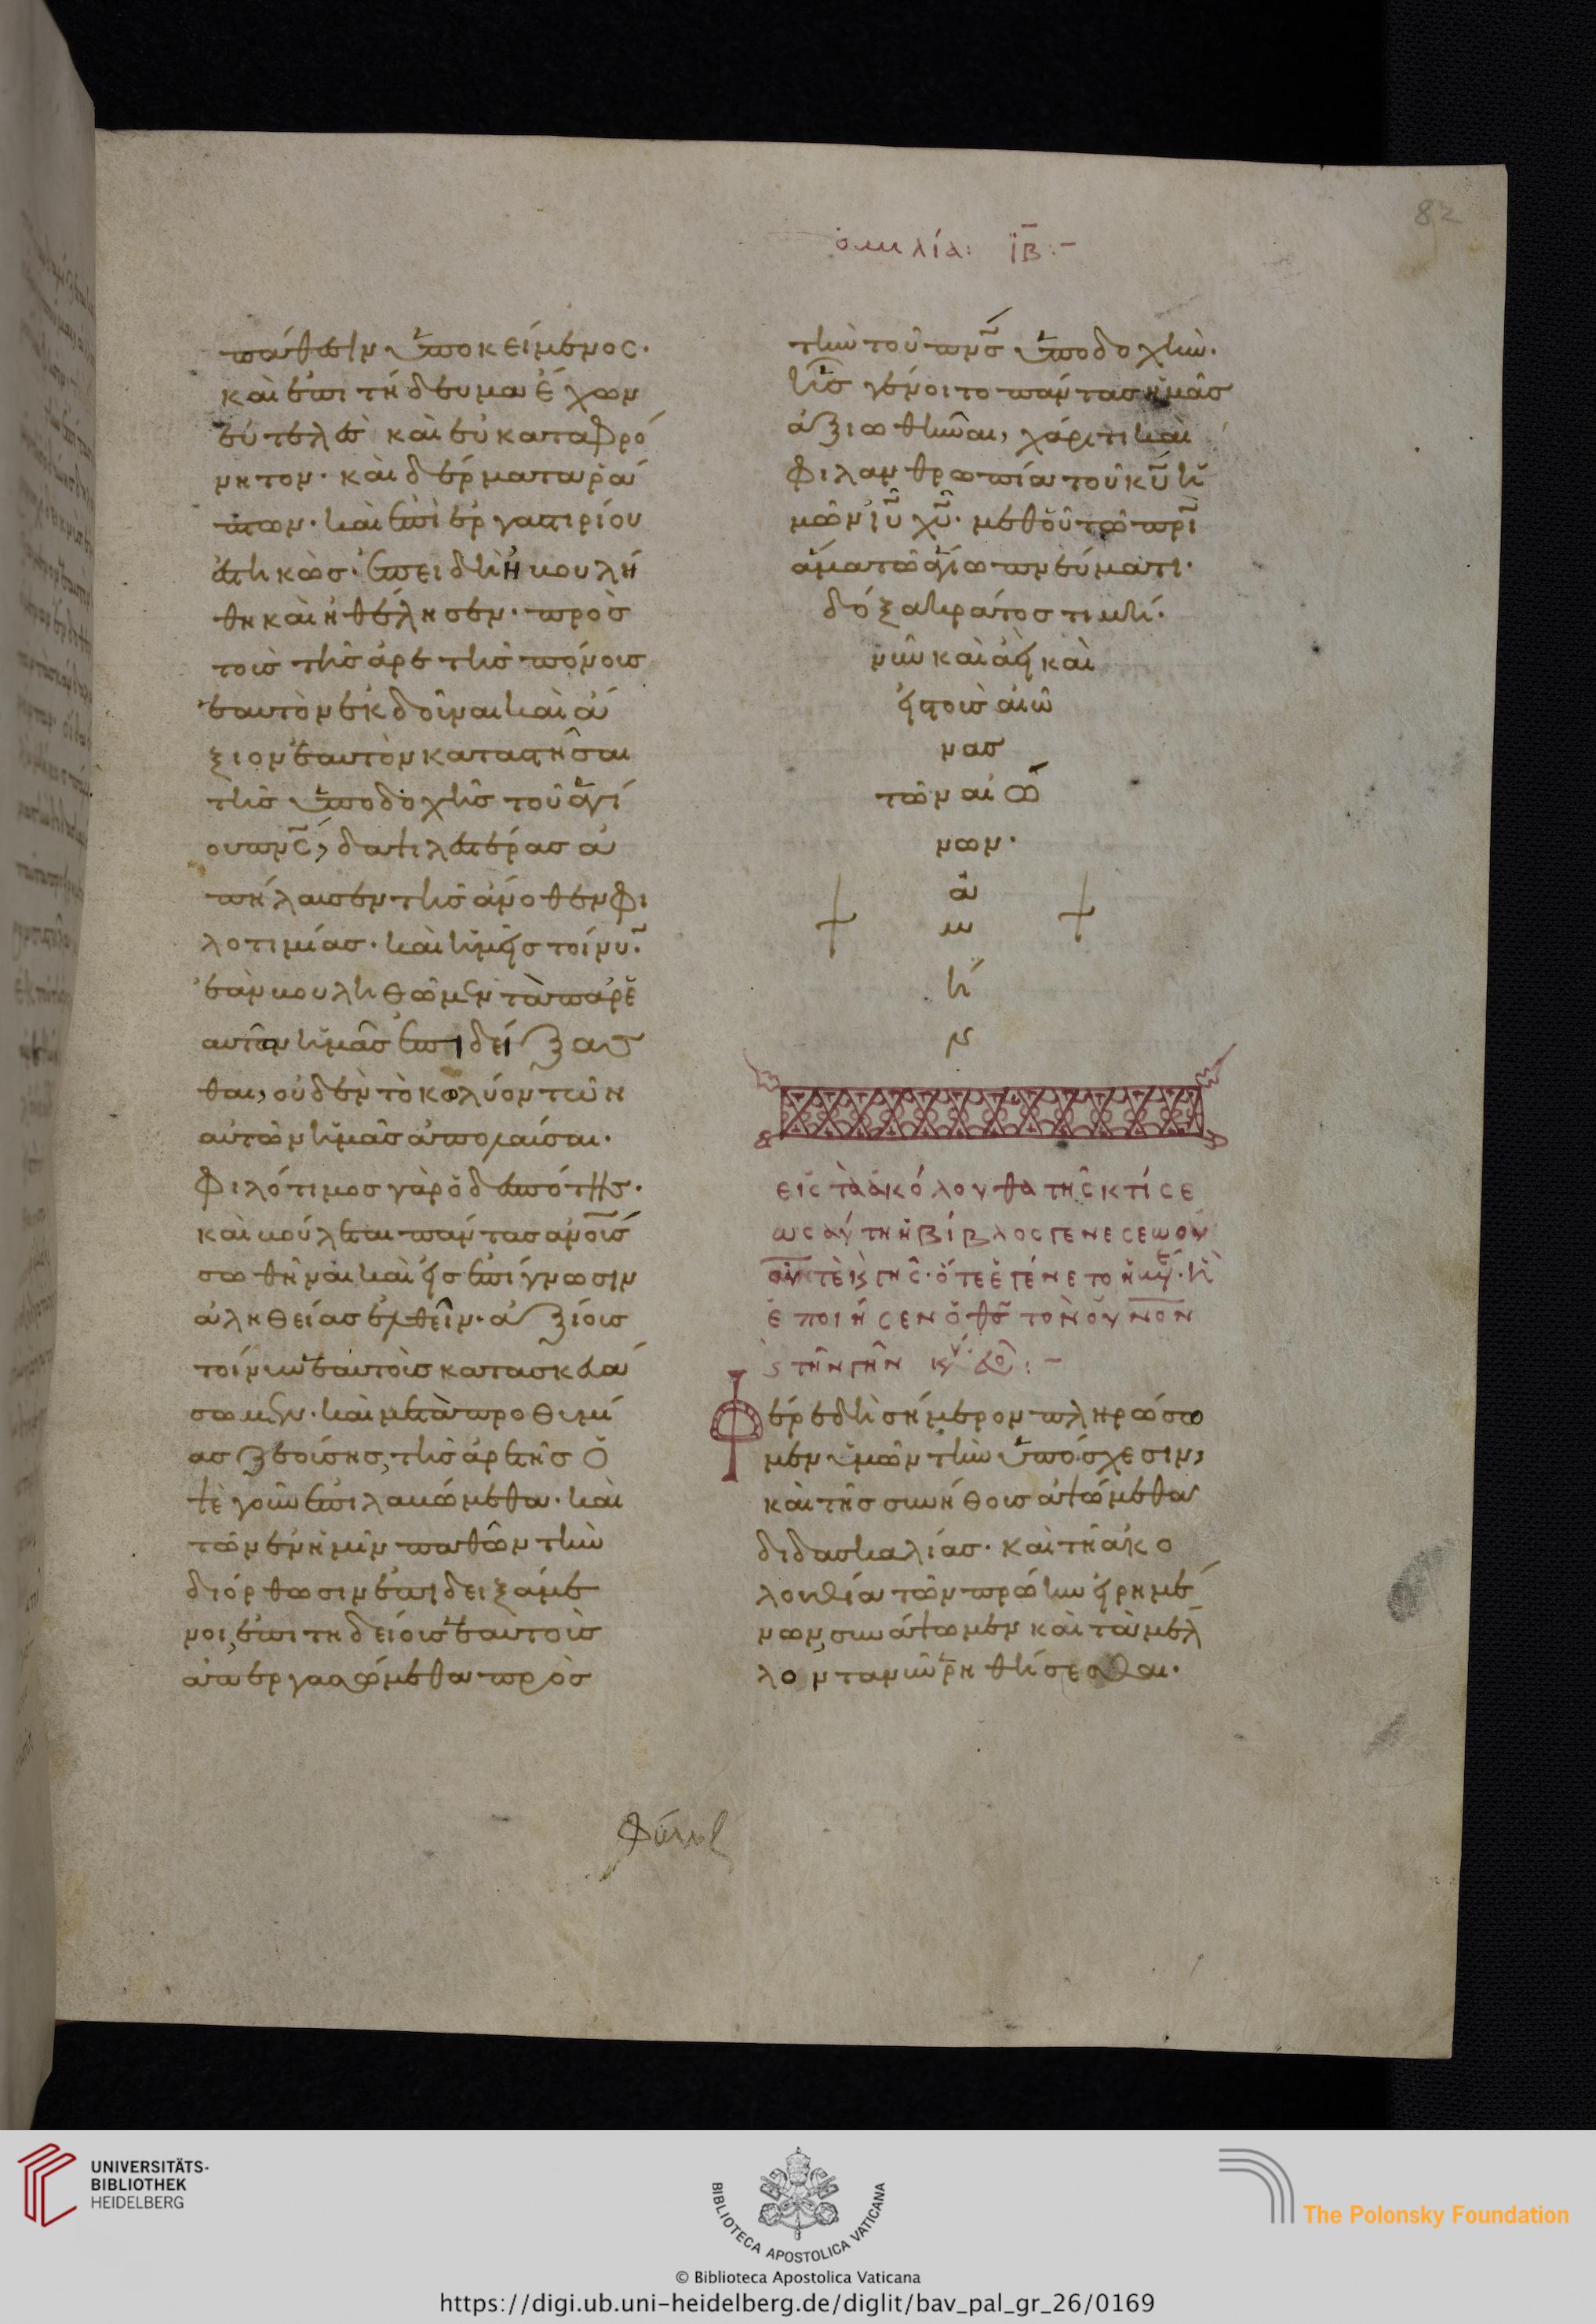 82
ὁμιλία: ΙΒ:-
πάθεσιν ὑποκείμενος·
καὶ ἐπιτήδευμα ἔχων
εὐτελὲς καὶ εὐκαταφρό
νητον· καὶ δέρματα ῥά
πτων· καὶ ἐπὶ ἐργαστηρίου
ἑστηκὼς· ἐπειδὴ ἠβουλή
θη καὶ ἠθέλησεν· πρὸς
τοῖς τῆς ἀρετῆς πόνοις
ἑαυτὸν ἐκδοῦναι καὶ ἄ
ξιον ἑαυτὸν καταστῆσαι
τῆς ὑποδοχῆς τοῦ ἁγί
ου πνς, δαψιλεστέρας ἀ
πήλαυσεν τῆς ἄνωθεν φι
λοτιμίας· καὶ ἡμεῖς τοίνυν
ἐὰν βουληθῶμεν τὰ παρ'
αὐτῶν ἡμᾶς ἐπιδείξασ
θαι, οὐδὲν τὸ κωλύον τῶν
αὐτῶν ἡμᾶς ἀπολαῦσαι·
Φιλότιμος γὰρ ὁ δεσπότης·
καὶ βούλεται πάντας ἀνοις
σωθῆναι καὶ εἰς ἐπίγνωσιν
ἀληθείας ἐλθεῖν· ἀξίους
τοίνυν ἑαυτοὺς κατασκευά
σωμεν· καὶ μετὰ προθυμί
ας ζεούσης, τῆς ἀρετῆς ὀ
ψέ γοῦν ἐπιλαβώμεθα· καὶ
τῶν ἐν ἡμῖν παθῶν τὴν
διόρθωσιν ἐπιδειξάμε
νοι, ἐπιτηδείους ἑαυτοὺς
ἀπεργασώμεθα πρὸς
τὴν τοῦ πνς ὑποδοχὴν·
ἧς γένοιτο πάντας ἡμᾶς
ἀξιωθῆναι, χάριτι καὶ
φιλανθρωπία τοῦ κυ ἡ
μῶν ιυ χυ· μεθ' οὗ τῶ πρι
ἅμα τῶ ἁγίω πνεύματι·
δόξα κράτος τιμή·
νῦν καὶ ἀεὶ καὶ
εἰς τοὺς αἰῶ
νας
τῶν αἰώ
νων·
ἀ
μ
ή
ν
εἰς τὰ ἀκόλουθα τῆς κτίσε
ως αὕτη ἡ βίβλος γενέσεως οὐ
ουνου τὲ καὶ γῆς· ὅτε ἐγένετο ἡμέ· ᾗ
ἐποίησεν ὁ θς τὸν οὐνον
καὶ τὴν γῆν
Φέρε δὴ σήμερον πληρώσω
μεν ὑμῶν τὴν ὑπόσχεσιν,
καὶ τῆς συνήθους ἁψώμεθα
διδασκαλίας· καὶ τῆ ἀκο
λουθία τῶν πρώην εἰρημέ
νων, συνάψωμεν καὶ τὰ μέλ
λοντα νῦν ῥηθήσεσθαι·
UNIVERSITÄTS-
BIBLIOTHEK
HEIDELBERG
BIBLIOTECA APOSTOLICA VATICANA
The Polonsky Foundation
© Biblioteca Apostolica Vaticana
https://digi.ub.uni-heidelberg.de/diglit/bav_pal_gr_26/0169